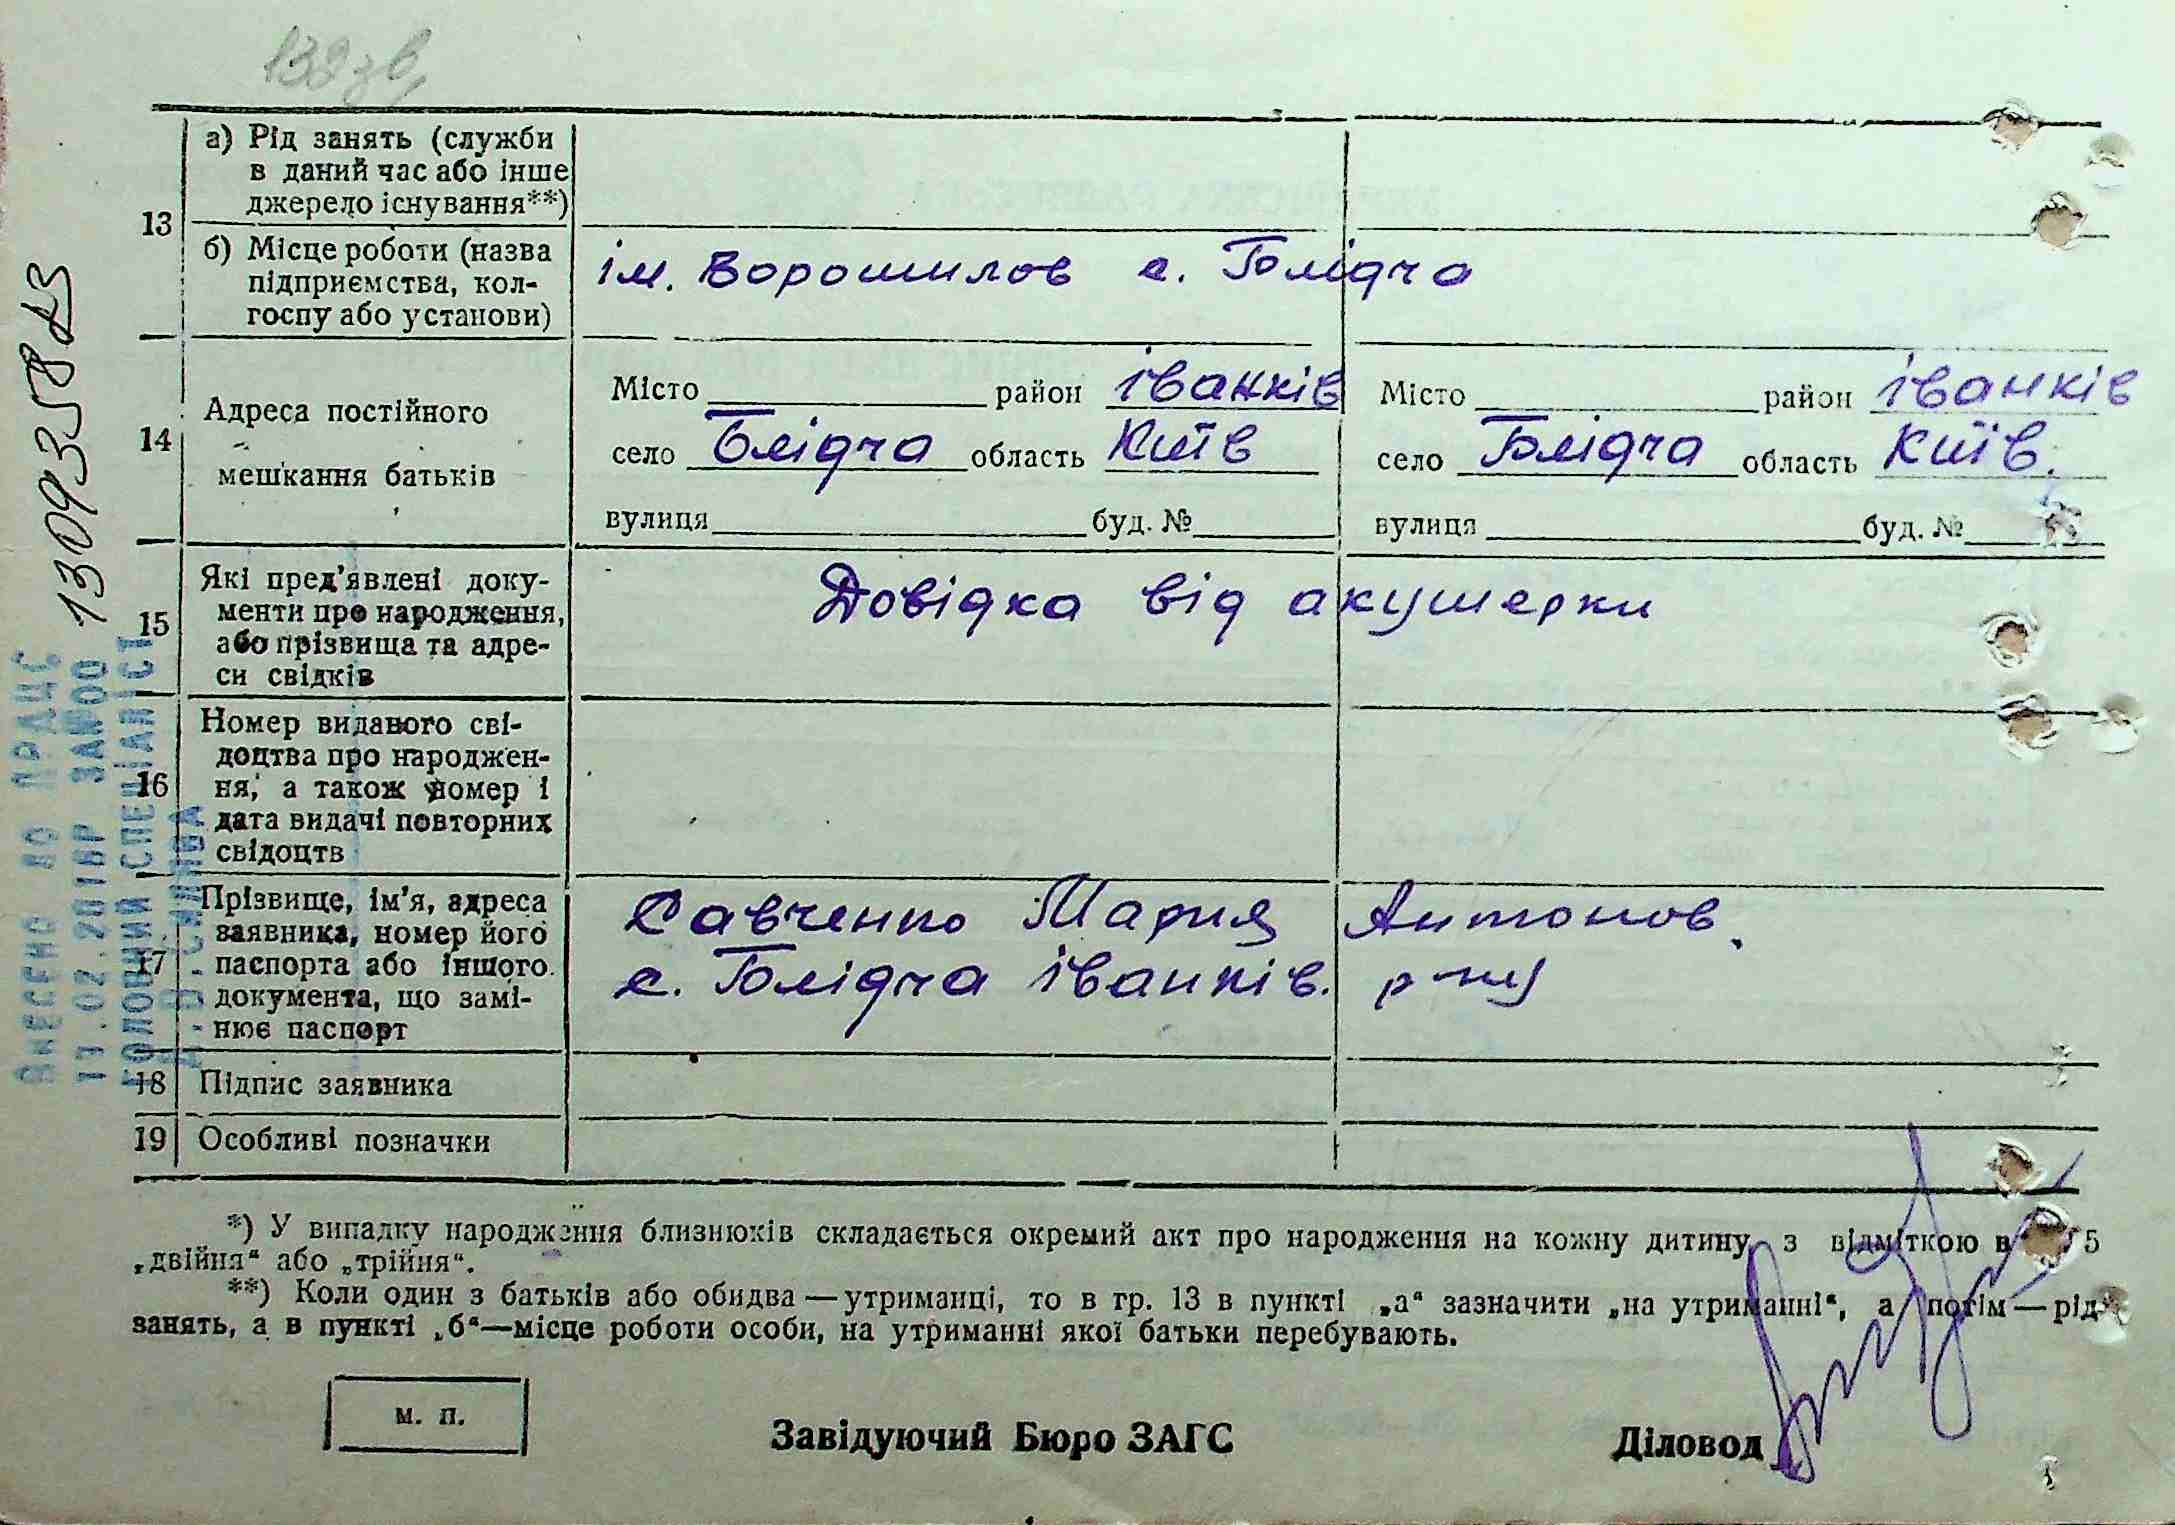 139 зв.
а) Рід занять (служби
в даний час або інше
джерело існування**)
13
б) Місце роботи (назва
підприємства, кол-
госпу або установи)
ім. Ворошилов с. Блідча
14
Адреса постійного
мешкання батьків
Місто район Іванків
село Блідча область Київ
вулиця буд. №
Місто район Іванків
село Блідча область Київ.
вулиця буд. №
15
Які пред'явлені доку-
менти про народження,
або прізвища та адре-
си свідків
Довідка від акушерки
16
Номер виданого сві-
доцтва про народжен-
ня, а також номер і
дата видачі повторних
свідоцтв
17
Прізвище, ім'я, адреса
заявника, номер його
паспорта або іншого
документа, що замі-
нює паспорт
Савченко Мария Антонов.
с. Блідча Іванків. р-ну
18 Підпис заявника
19 Особливі позначки
*) У випадку народження близнюків складається окремий акт про народження на кожну дитину з відміткою в 5
„двійня“ або „трійня“.
**) Коли один з батьків або обидва — утриманці, то в гр. 13 в пункті „а“ зазначити „на утриманні“, а потім — рід
занять, а в пункті „б“—місце роботи особи, на утриманні якої батьки перебувають.
м. п.
Завідуючий Бюро ЗАГС
Діловод
ВНЕСЕНО ДО ДРАЦС
17.02.2016Р ЗА№00 130935883
ГОЛОВНИЙ СПЕЦІАЛІСТ